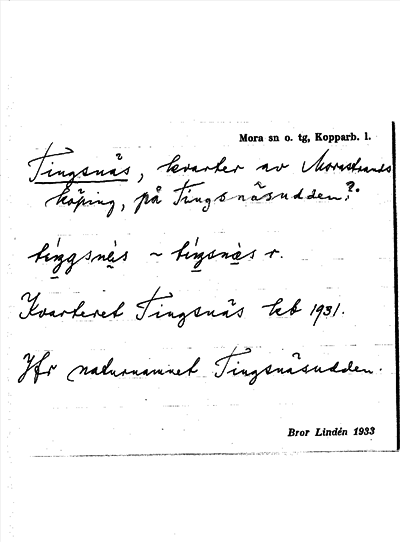 Mora sn o. tg, Kopparb. l.
Tingsnäs, kvarter av Morastrands
köping, på Tingsnäsudden?.
Kvarteret Tingsnäs kb 1931.
Jfr naturnamnet Tingsnäsudden.
Bror Lindén 1933